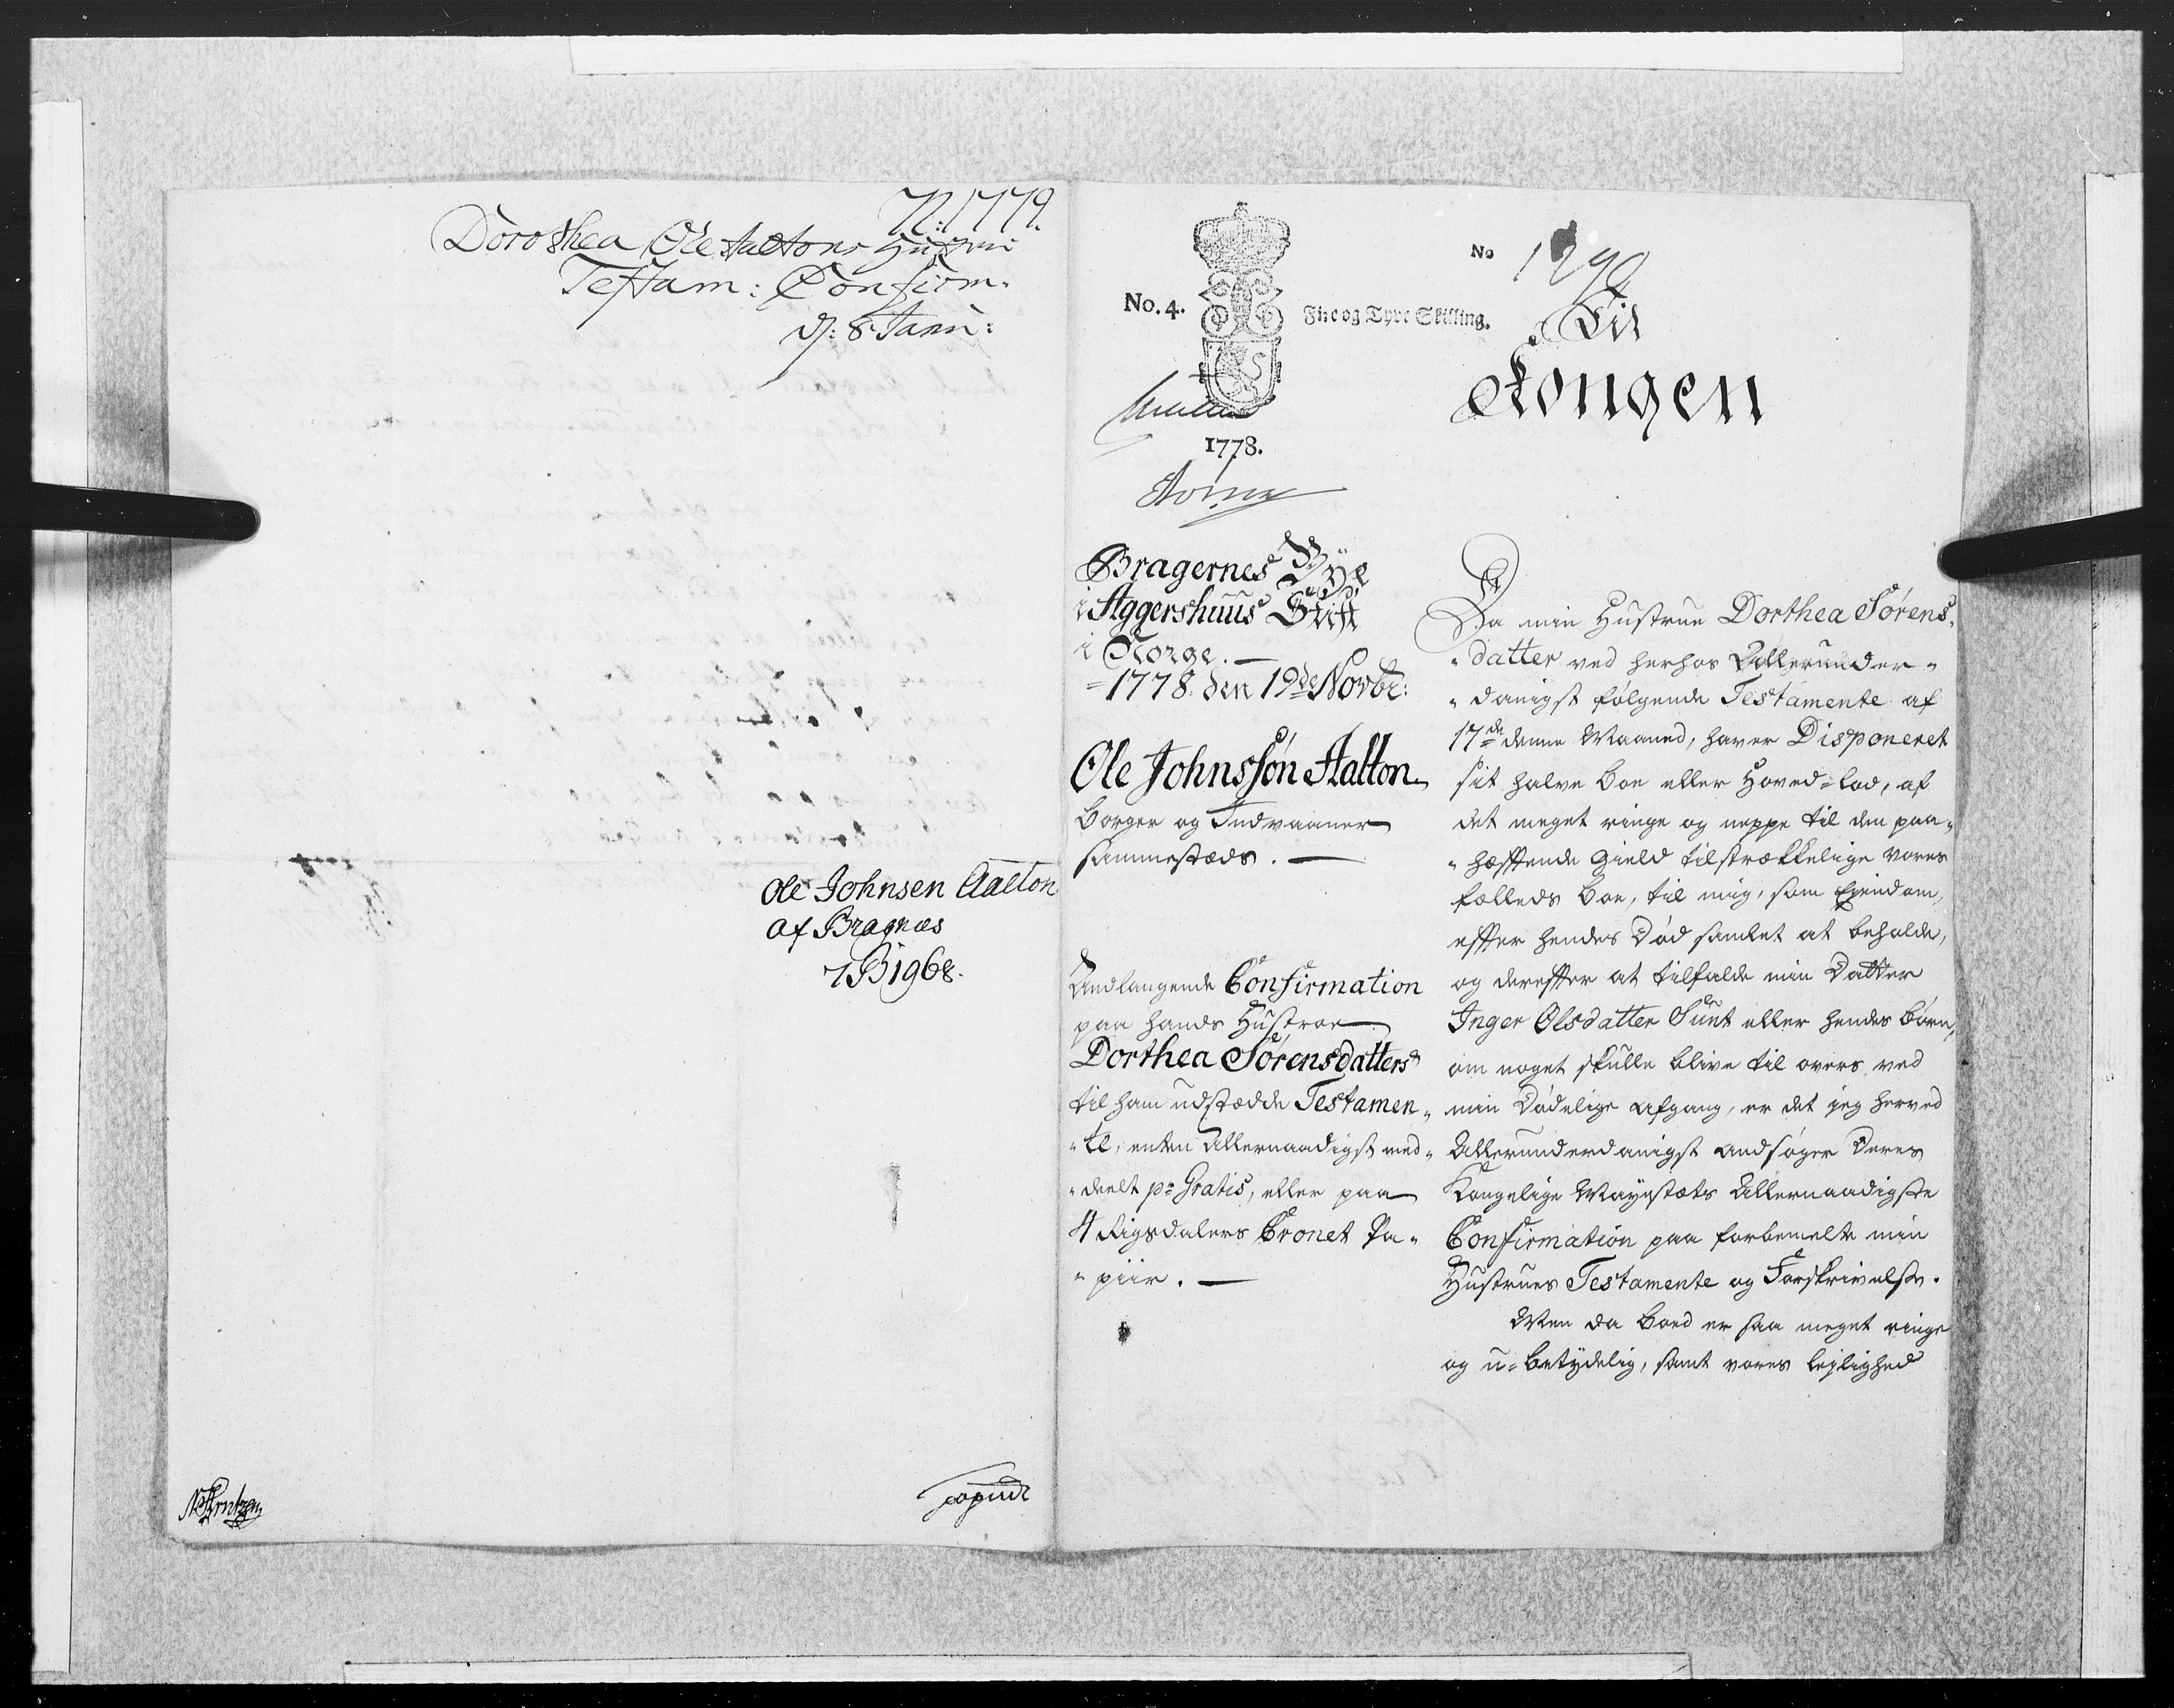 N: 1779.
Dorothea Ole Aaltons Hustru
Testam: Confirm.
d: 8 Janu:
Ole Johnsen Aalton
af Bragnæs
7B1968.
No. 4.
Fire og Tyve Skilling.
No
1290
Til
Kongen
1778.
Bragernes Bÿe
i Aggershuus Stift
i Norge.
1778. den 19de Novbr:
Ole Johnssøn Aalton
Borger og Indvaaner
sammestæds.
Andlangende Confirmation
paa hands Hustroe
Dorthea Sørensdatters
til ham udstædde Testamen-
te, enten Allernaadigst med-
deelt pr Gratis, eller paa
4 Rigsdalers Cronet Pa-
piir.
Da min Hustrue Dorthea Sørens-
datter ved herhos Allerunder-
danigst følgende Testamente af
17de denne Maaned, haver Disponeret
sit halve Boe eller Hoved-lod, af
det meget ringe og neppe til den paa-
hæftende Gield tilstrækkelige vores
fælleds Boe, til mig, som Ejendom,
efter hendes Død samlet at beholde,
og derefter at tilfalde min Datter
Inger Olsdatter Sunt eller hendes Børn,
om noget skulle blive til overs ved
min Dødelige afgang, er det jeg herved
Allerunderdanigst andsøger Deres
Kongelige Mayestæts Allernaadigste
Confirmation paa forbemelte min
Hustrues Testamente og Forskrivelse.
Men da Boed er saa meget ringe
og u-betydelig, samt vores lejlighed